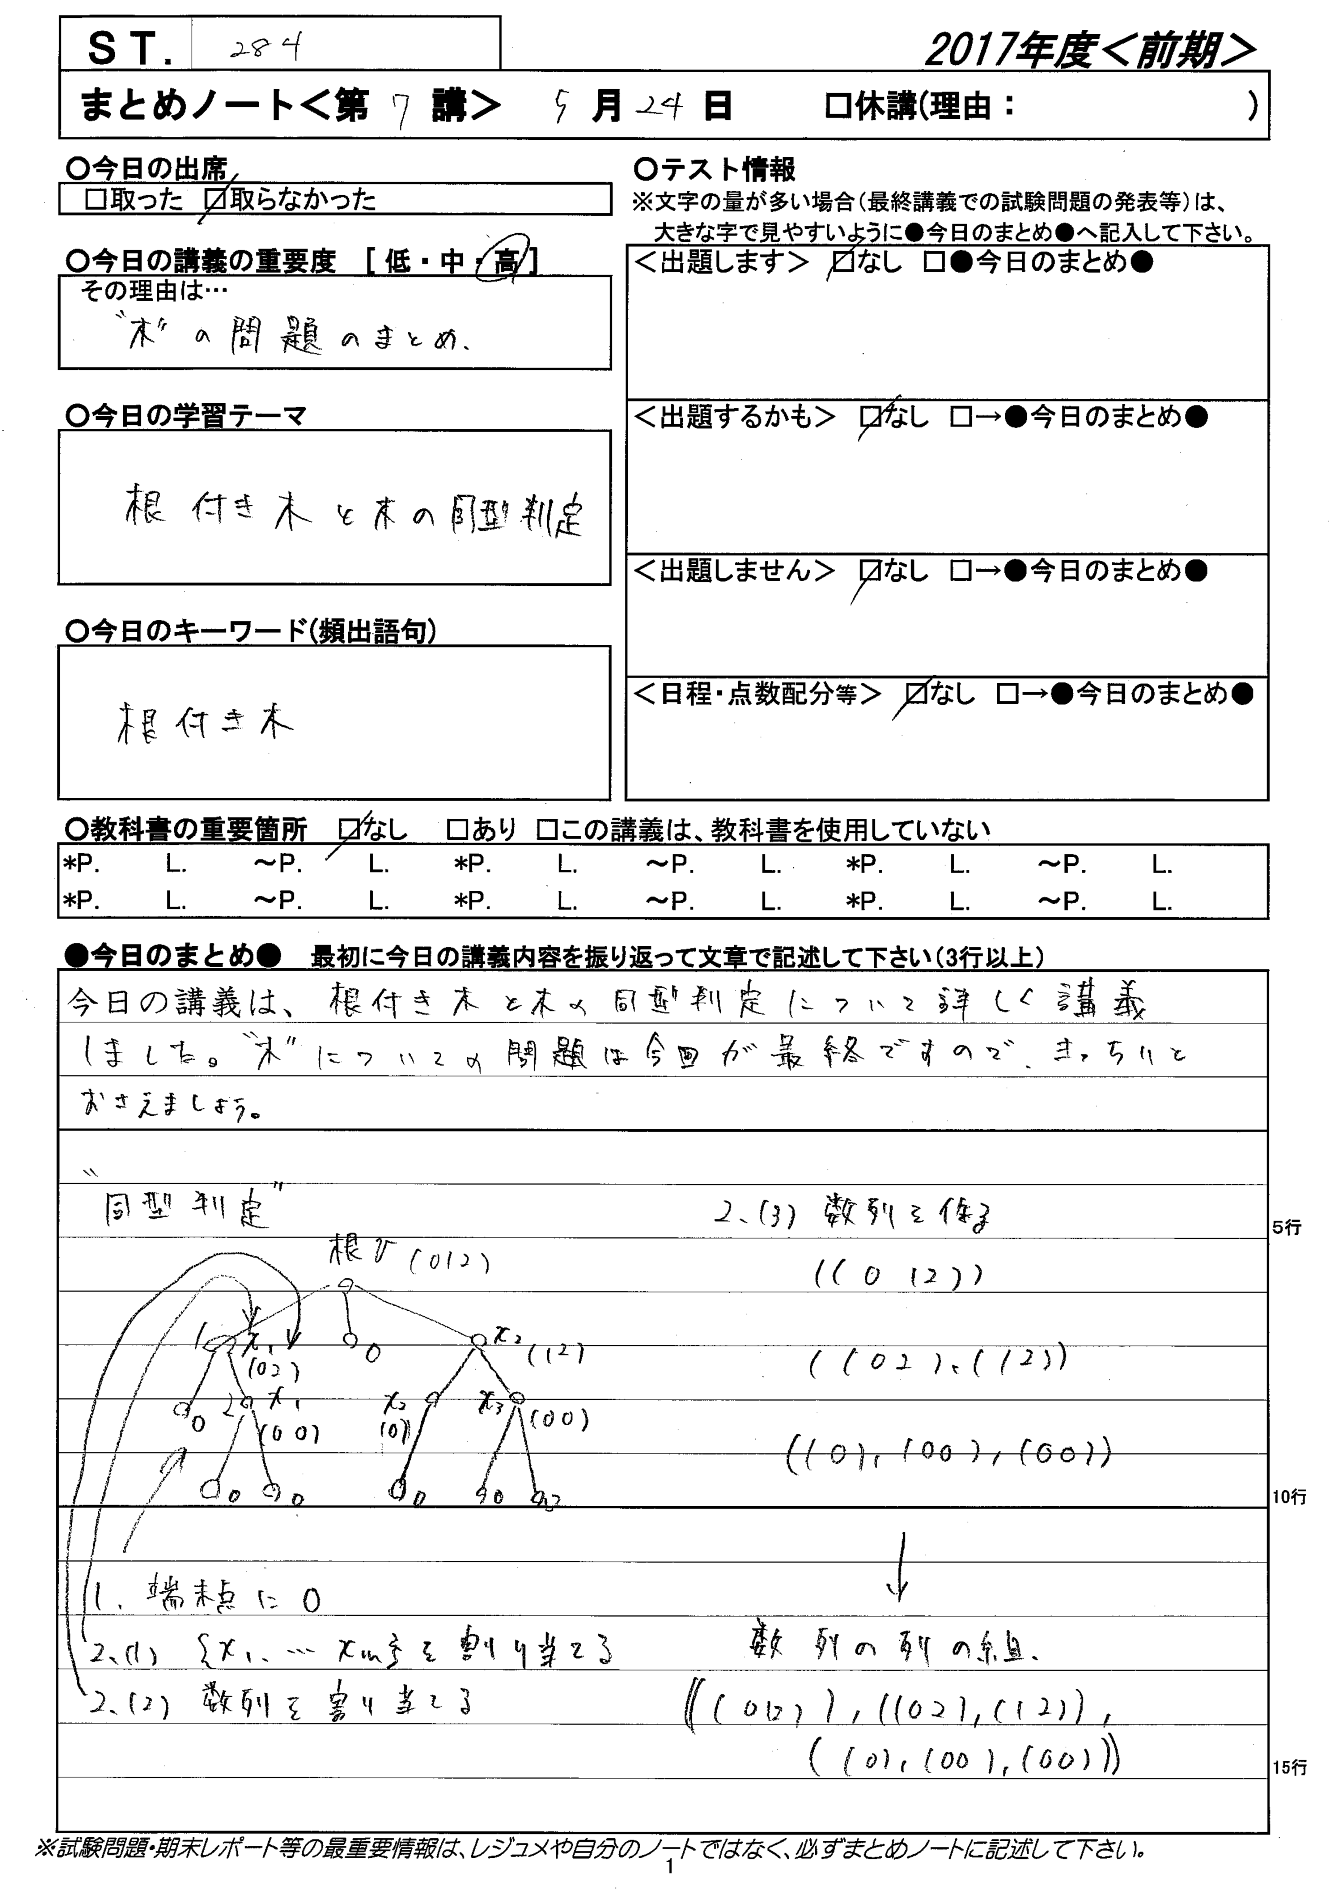 ST. 284
2017年度＜前期＞
まとめノート＜第 7 講＞ 5 月 24 日 □休講(理由： )
○今日の出席
□取った ☑取らなかった
○今日の講義の重要度 [ 低・中・高 ]
その理由は…
"木"の問題のまとめ.
○今日の学習テーマ
根付き木と木の同型判定
○今日のキーワード(頻出語句)
根付き木
○テスト情報
※文字の量が多い場合(最終講義での試験問題の発表等)は、
大きな字で見やすいように●今日のまとめ●へ記入して下さい。
＜出題します＞ ☑なし □●今日のまとめ●
＜出題するかも＞ ☑なし □→●今日のまとめ●
＜出題しません＞ ☑なし □→●今日のまとめ●
＜日程・点数配分等＞ ☑なし □→●今日のまとめ●
○教科書の重要箇所 ☑なし □あり □この講義は、教科書を使用していない
*P. L. ～P. L. *P. L. ～P. L. *P. L. ～P. L.
*P. L. ～P. L. *P. L. ～P. L. *P. L. ～P. L.
●今日のまとめ● 最初に今日の講義内容を振り返って文章で記述して下さい(3行以上)
今日の講義は、根付き木と木の同型判定について詳しく講義
しました。"木"についての問題は今回が最終ですので、きっちりと
おさえましょう。
"同型判定"
根v (012)
1 x1 (02)
0
x2 (12)
0
2 x1 (00)
x2 (0)
x3 (00)
0 0 0 0
1. 端末点に0
2.(1) {x1, … xm}を割り当てる
2.(2) 数列を割り当てる
2.(3) 数列を作る
5行
((012))
((02),(12))
((0),(00),(00))
10行
↓
数列の列の組.
(((012)),((02),(12)),
((0),(00),(00)))
15行
※試験問題・期末レポート等の最重要情報は、レジュメや自分のノートではなく、必ずまとめノートに記述して下さい。
1